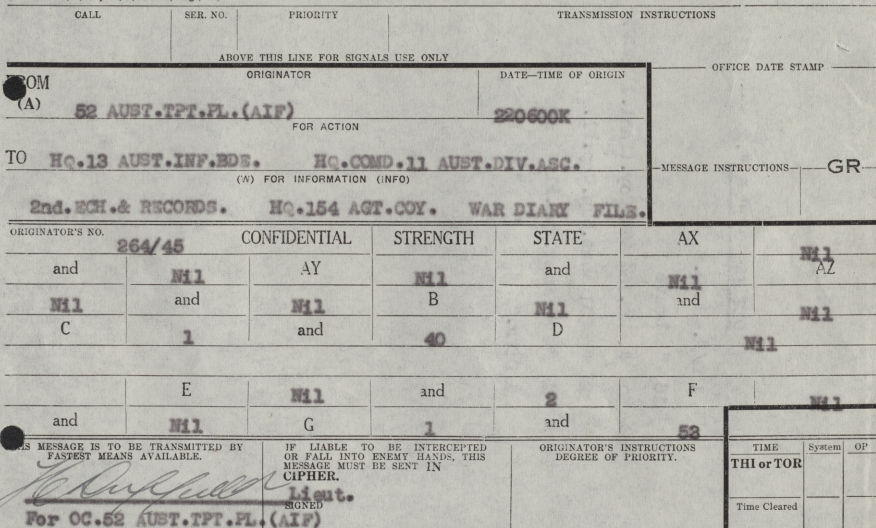 CALL SER. NO. PRIORITY TRANSMISSION INSTRUCTIONS
ABOVE THIS LINE FOR SIGNALS USE ONLY
FROM ORIGINATOR DATE—TIME OF ORIGIN OFFICE DATE STAMP
(A) 52 AUST.TPT.PL.(AIF) 220600K
FOR ACTION
TO HQ.13 AUST.INF.BDE. HQ.COMD.11 AUST.DIV.ASC. MESSAGE INSTRUCTIONS GR
(W) FOR INFORMATION (INFO)
2nd.ECH.& RECORDS. HQ.154 AGT.COY. WAR DIARY FILE.
ORIGINATOR'S NO. 264/45 CONFIDENTIAL STRENGTH STATE AX Nil
and Nil AY Nil and Nil AZ
Nil and Nil B Nil and Nil
C 1 and 40 D Nil
E Nil and 2 F Nil
and Nil G 1 and 53
THIS MESSAGE IS TO BE TRANSMITTED BY FASTEST MEANS AVAILABLE.
IF LIABLE TO BE INTERCEPTED OR FALL INTO ENEMY HANDS, THIS MESSAGE MUST BE SENT IN CIPHER.
ORIGINATOR'S INSTRUCTIONS DEGREE OF PRIORITY.
TIME System OP
THI or TOR
Time Cleared
Lieut.
SIGNED
For OC.52 AUST.TPT.PL.(AIF)